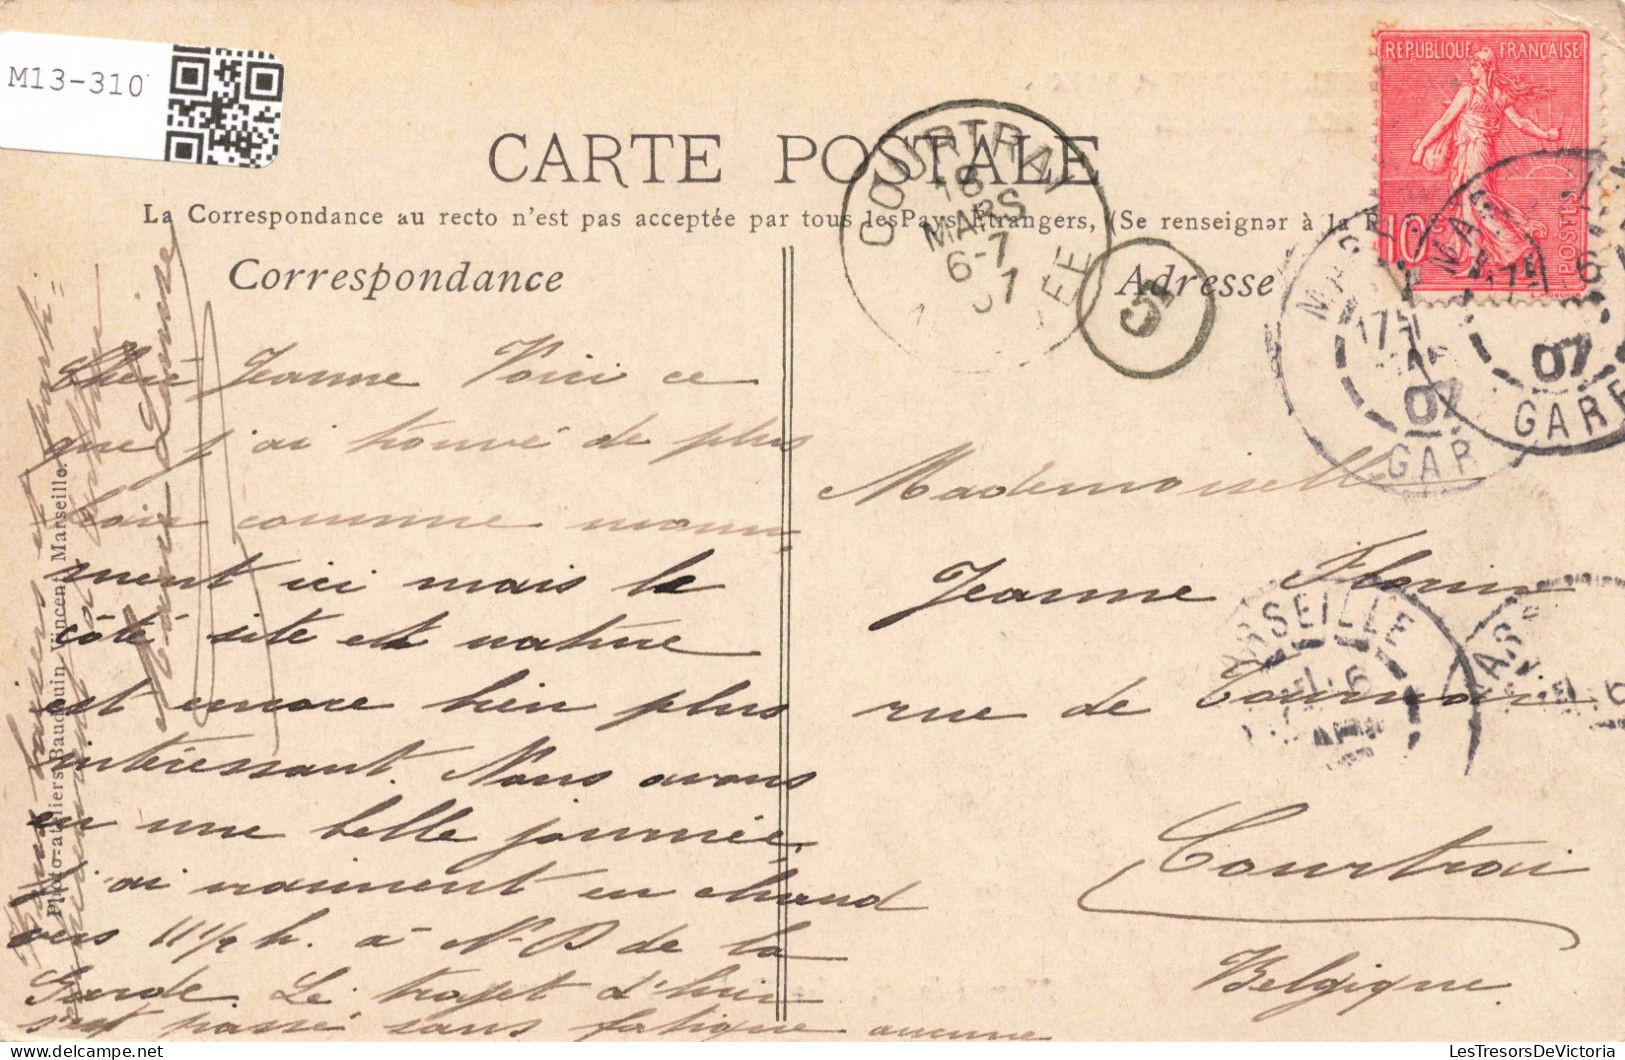 M13-310
CARTE POSTALE
La Correspondance au recto n'est pas acceptée par tous les Pays Etrangers, (Se renseigner à la P
Correspondance
Adresse
REPUBLIQUE FRANÇAISE
10 c
POSTES
E. MOUCHON
COURTRAI
18
MARS
6-7
MARSEILLE
07
GARE
MARSEILLE
07
GARE
MARSEILLE
Chère Jeanne Voici ce
que j'ai trouvé de plus
beau comme monu-
ment ici mais le
côté site et nature
est encore bien plus
intéressant. Nous avons
eu une belle journée.
J'ai vraiment eu chaud
vers 11 1/2 h. à N-D de la
Garde. Le trajet d'hier
s'est passé sans fatigue aucune
Marie Louise
Photo-ateliers Baudouin Vincent, Marseille.
Mademoiselle
Jeanne Florin
rue de Tournai
Courtrai
Belgique
LesTresorsDeVictoria.com